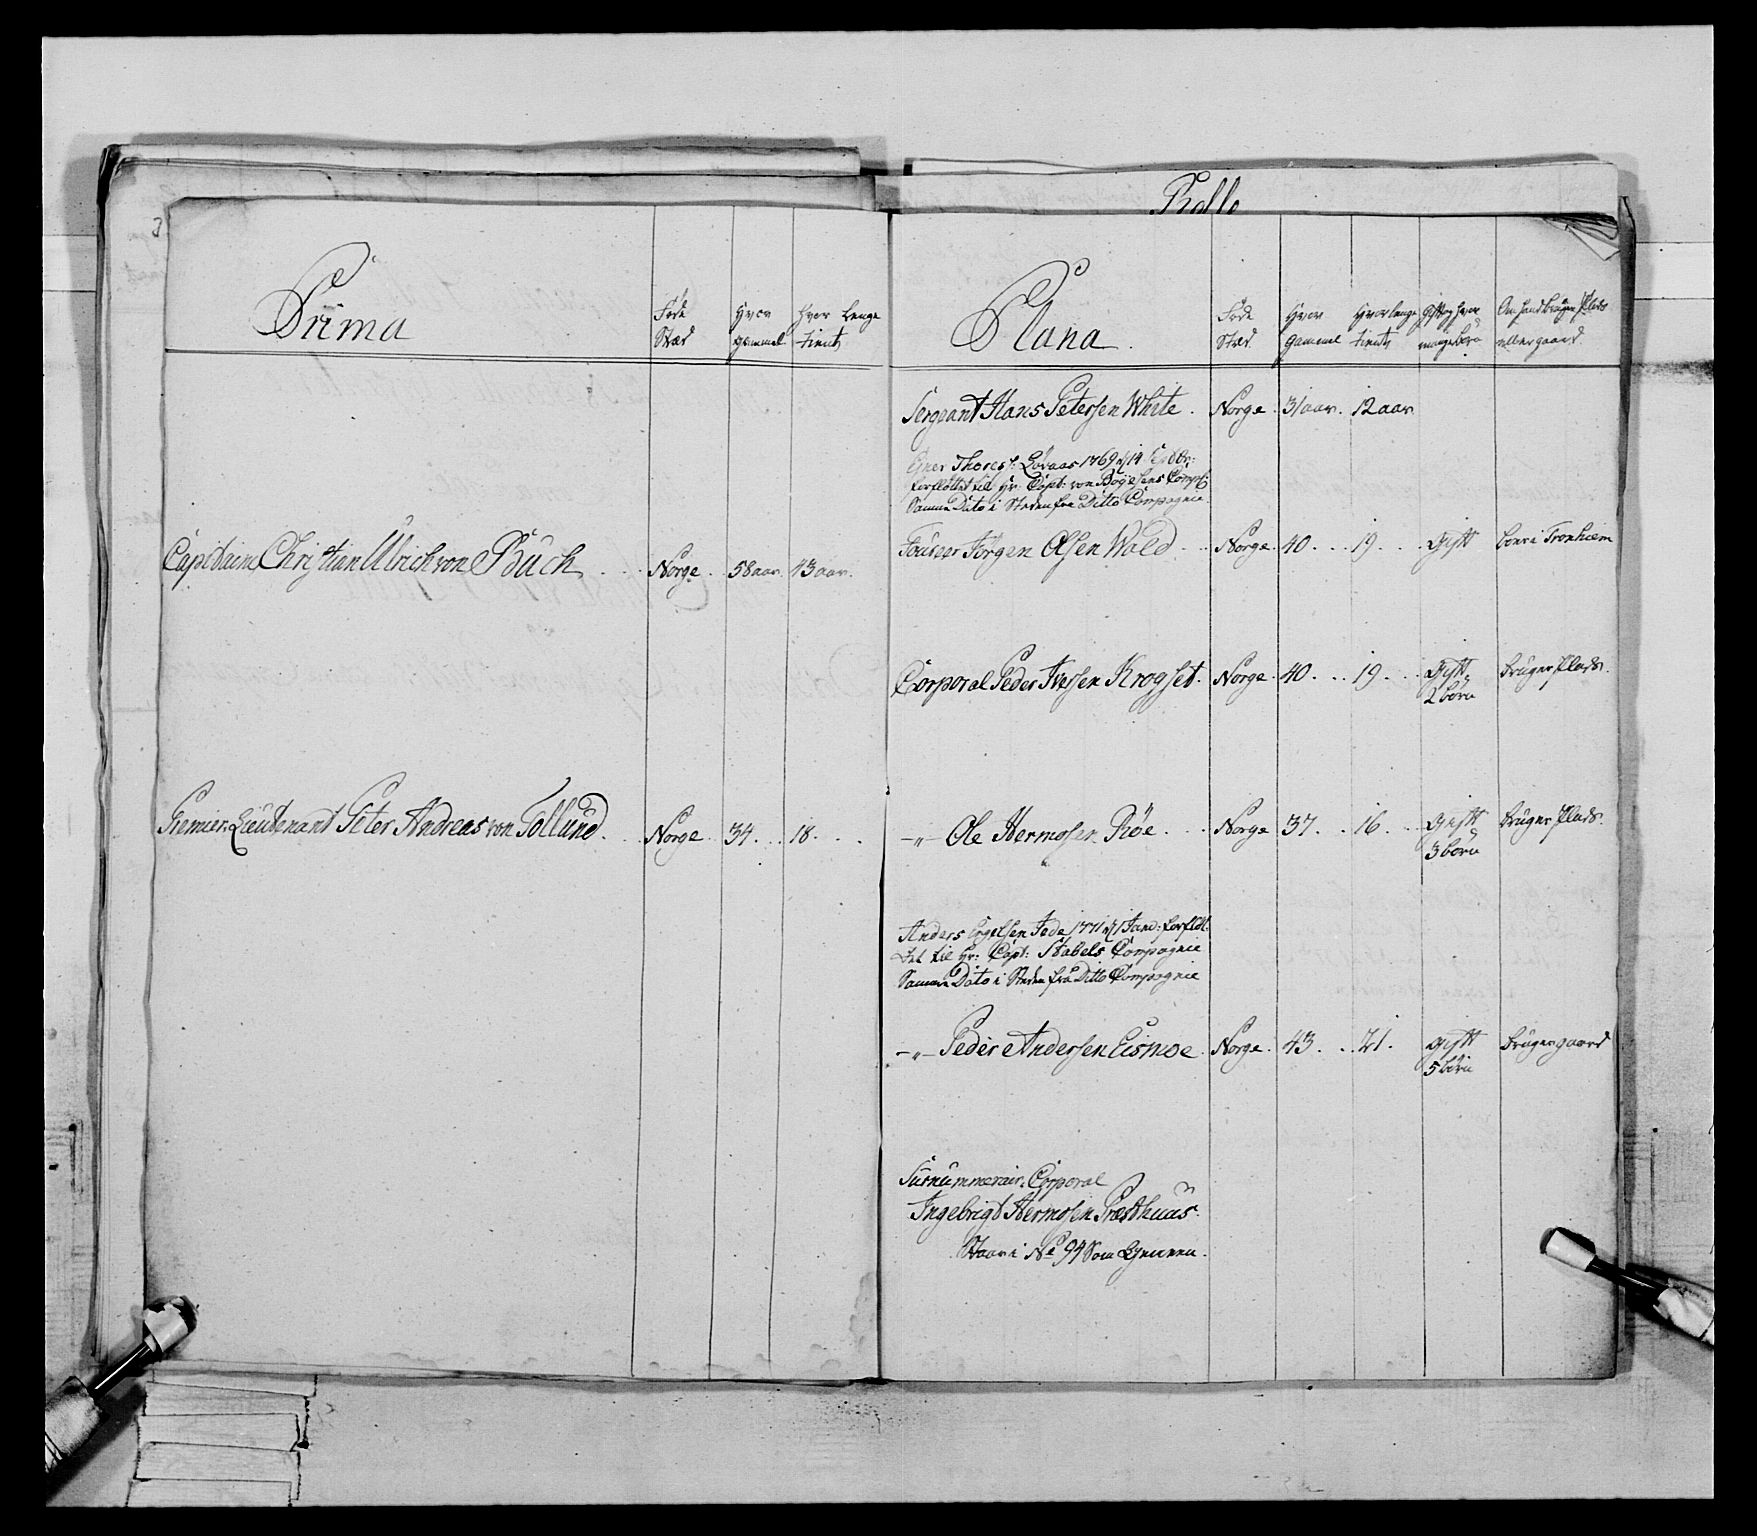 Rolle
Prima
Føde Stæd
Hvor gammel
Hvor Lenge tient
Capitaine Christian Ulrich von Buch . . Norge . . 58 aar . 43 aar .
Premier Lieutenant Peter Andreas von Tollund . . Norge . . 34 . . . 18 . . .
Plana .
Føde Stæd
Hvor gammel
Hvor lenge tient
Gift og hvor mange børn
Om hand bruger Plads eller gaard .
Sergeant Hans Petersen White . Norge . 31 aar . 12 aar
Thores: Løvaas 1769
forfløttet til Hr: Capt: von Compt:
Samme Dato i Steden fra Ditto Compagnie .
Foureer Jørgen Olsen Wold . . Norge . 40 . . . 19 . . . Gift boer i Tronhiem
Corporal Peder Iversen Krogset . Norge . 40 . . . 19 . . . Gift bruger Plads .
2 børn
-"- Ole Hermosen Røe . . . Norge 37 . . 16 . . . Gift bruger Plads .
3 børn
Anders 1771 d 1 Janu: forfløt:
tet til Hr: Capt: Stabels Compagnie
Samme Dato i Steden fra Ditto Compagnie
-"- Peder Andersen Eismoe . Norge . 43 . . . 21 . gift bruger gaard
5 børn
Surnummerair: Corporal
Ingebrigt Hermosen Præsthuus .
Staar i No 94 Som Gemeen .